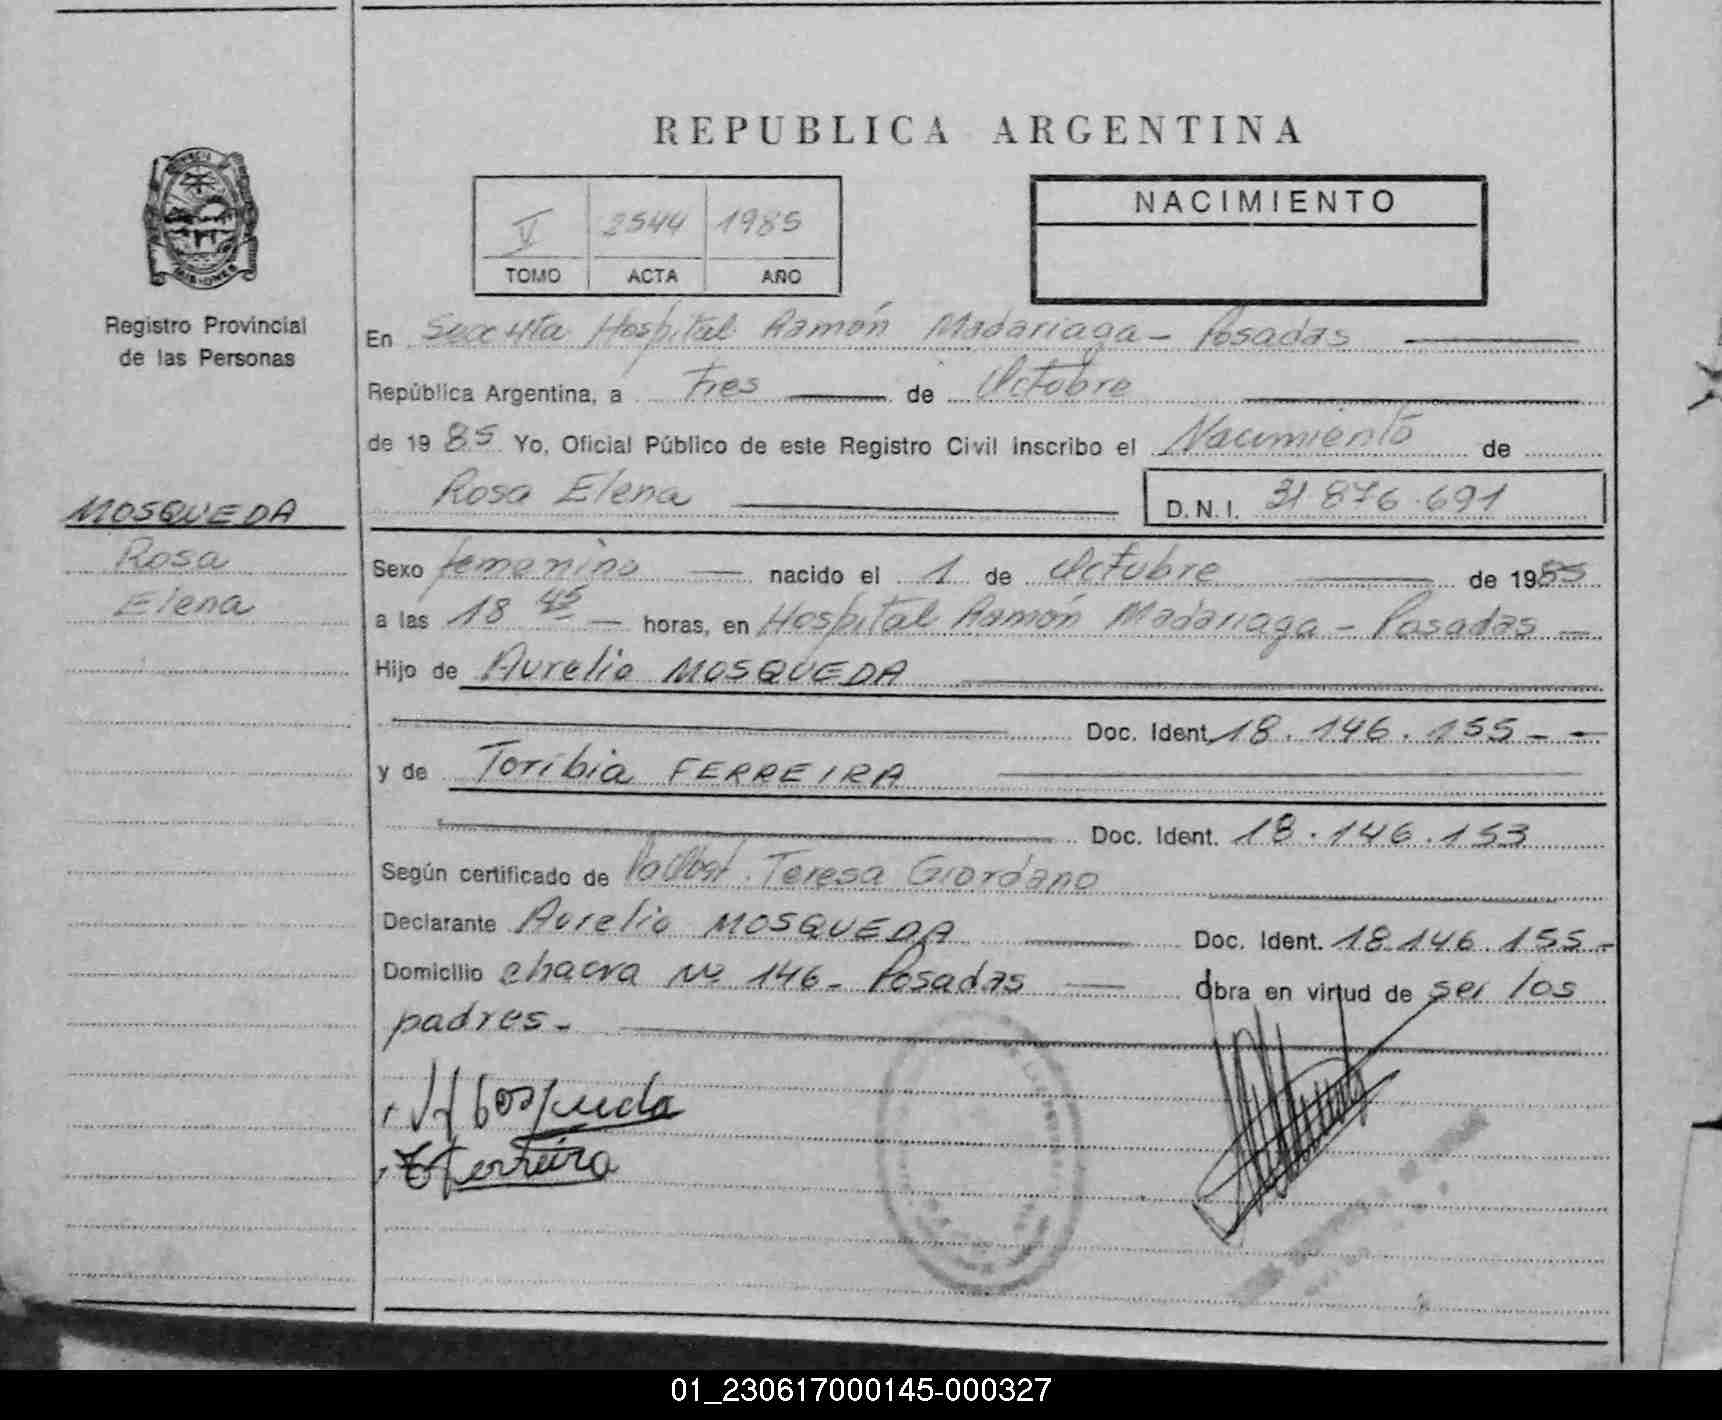 REPUBLICA ARGENTINA
V 2544 1985
TOMO ACTA AÑO
NACIMIENTO
Registro Provincial
de las Personas
En Hospital Ramón Madariaga - Posadas
República Argentina, a tres de Octubre
de 1985 Yo, Oficial Público de este Registro Civil inscribo el Nacimiento de
Rosa Elena
D.N.I. 31 876.691
MOSQUEDA
Rosa
Elena
Sexo femenino nacido el 1 de Octubre de 1985
a las 18 45 horas, en Hospital Ramón Madariaga - Posadas
Hijo de Aurelio MOSQUEDA
Doc. Ident. 18.146.155 - -
y de Toribia FERREIRA
Doc. Ident. 18.146.153
Según certificado de Teresa Giordano
Declarante Aurelio MOSQUEDA Doc. Ident. 18.146.155 -
Domicilio chacra Nº 146 - Posadas Obra en virtud de ser los
padres.-
Mosqueda
T Ferreira
01_230617000145-000327